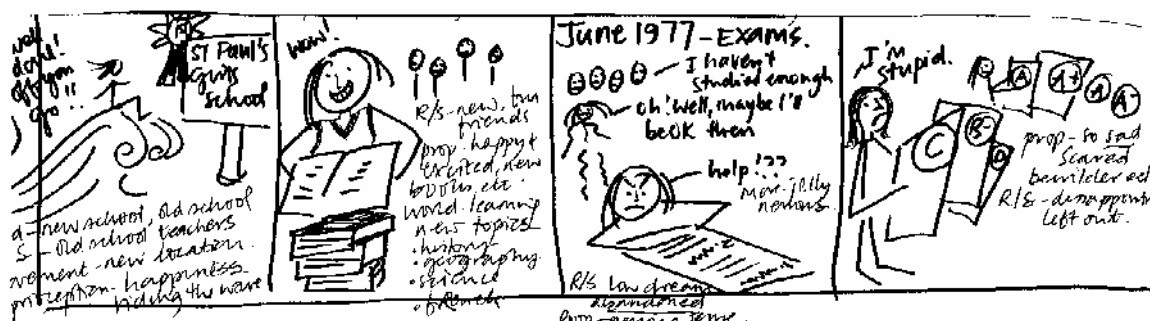 well
done!
off you
go!!
ST PAUL'S
girls
school
new school, old school
S - Old school teachers
new location.
happiness
riding the wave
Wow!
R/S - new, fun
friends
prop. happy &
excited, new
books, etc.
world. learning
new topics
• history
• geography
• science
• french
June 1977 - EXAMS.
I haven't
studied enough
Oh! well, maybe I'll
be OK then
help!??
nervous.
R/S low dream
abandoned
I'm
stupid.
A
A+
A
A-
C
B-
prop - so sad
scared
bewildered
R/S - disappoint
left out.